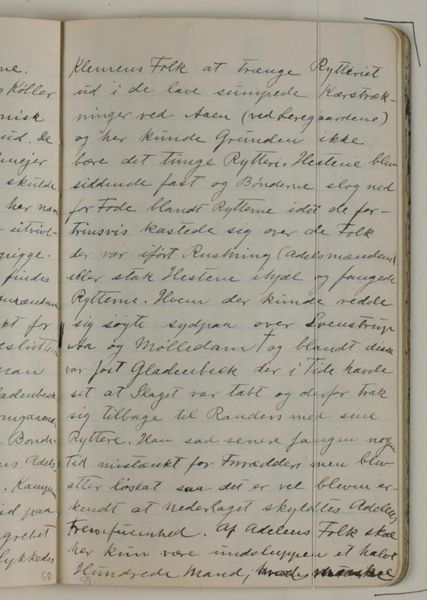 ne.
s Köller
nisk
ud. De
mejer
skulde
her nam
utvivl-
rigge.
findes
mændene
kt for
slutter
man
ladenbeck
Bonder
ns Adels
Kampen
id paa
grebet
lykkedes
Klemens Folk at trænge Rytteriet
ud i de lave sumpede Kærstræk-
ninger ved Aaen (ved Leregaardene)
og her kunde Grunden ikke
bære det tunge Rytteri. Hestene blev
siddende fast og Bønderne slog ned
for Fode blandt Rytterne idet de for-
trinsvis kastede sig over de Folk
der var iført Rustning (Adelsmændene)
eller stak Hestene ihjæl og fangede
Rytterne. Hvem der kunde redde
sig søgte sydpaa over Svenstrup
Aa og Mølledam og blandt disse
var først Gladenbeck der i Tide havde
set at Slaget var tabt og derfor trak
sig tilbage til Randers med sine
Ryttere. Han sad senere fangen nogen
Tid mistænkt for Forræderi men blev
atter løsladt saa det er vel bleven er-
kendt at Nederlaget skyldtes Adelens
Fremfusenhed. Af Adelens Folk skal
her kun være undsluppen et halvt
Hundrede Mand,